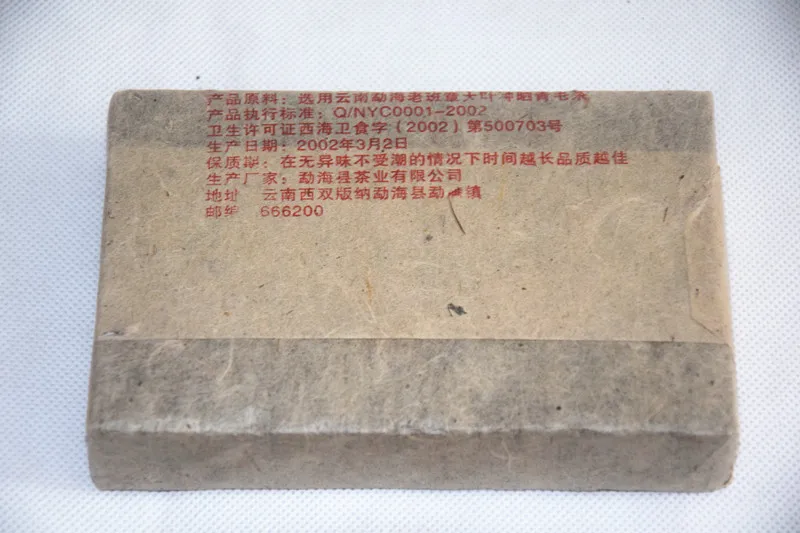 产品原料：选用云南勐海老班章大叶种晒青毛茶
产品执行标准：Q/NYC0001-2002
卫生许可证西海卫食字（2002）第500703号
生产日期：2002年3月2日
保质期：在无异味不受潮的情况下时间越长品质越佳
生产厂家：勐海县茶业有限公司
地址 云南西双版纳勐海县勐海镇
邮编 666200